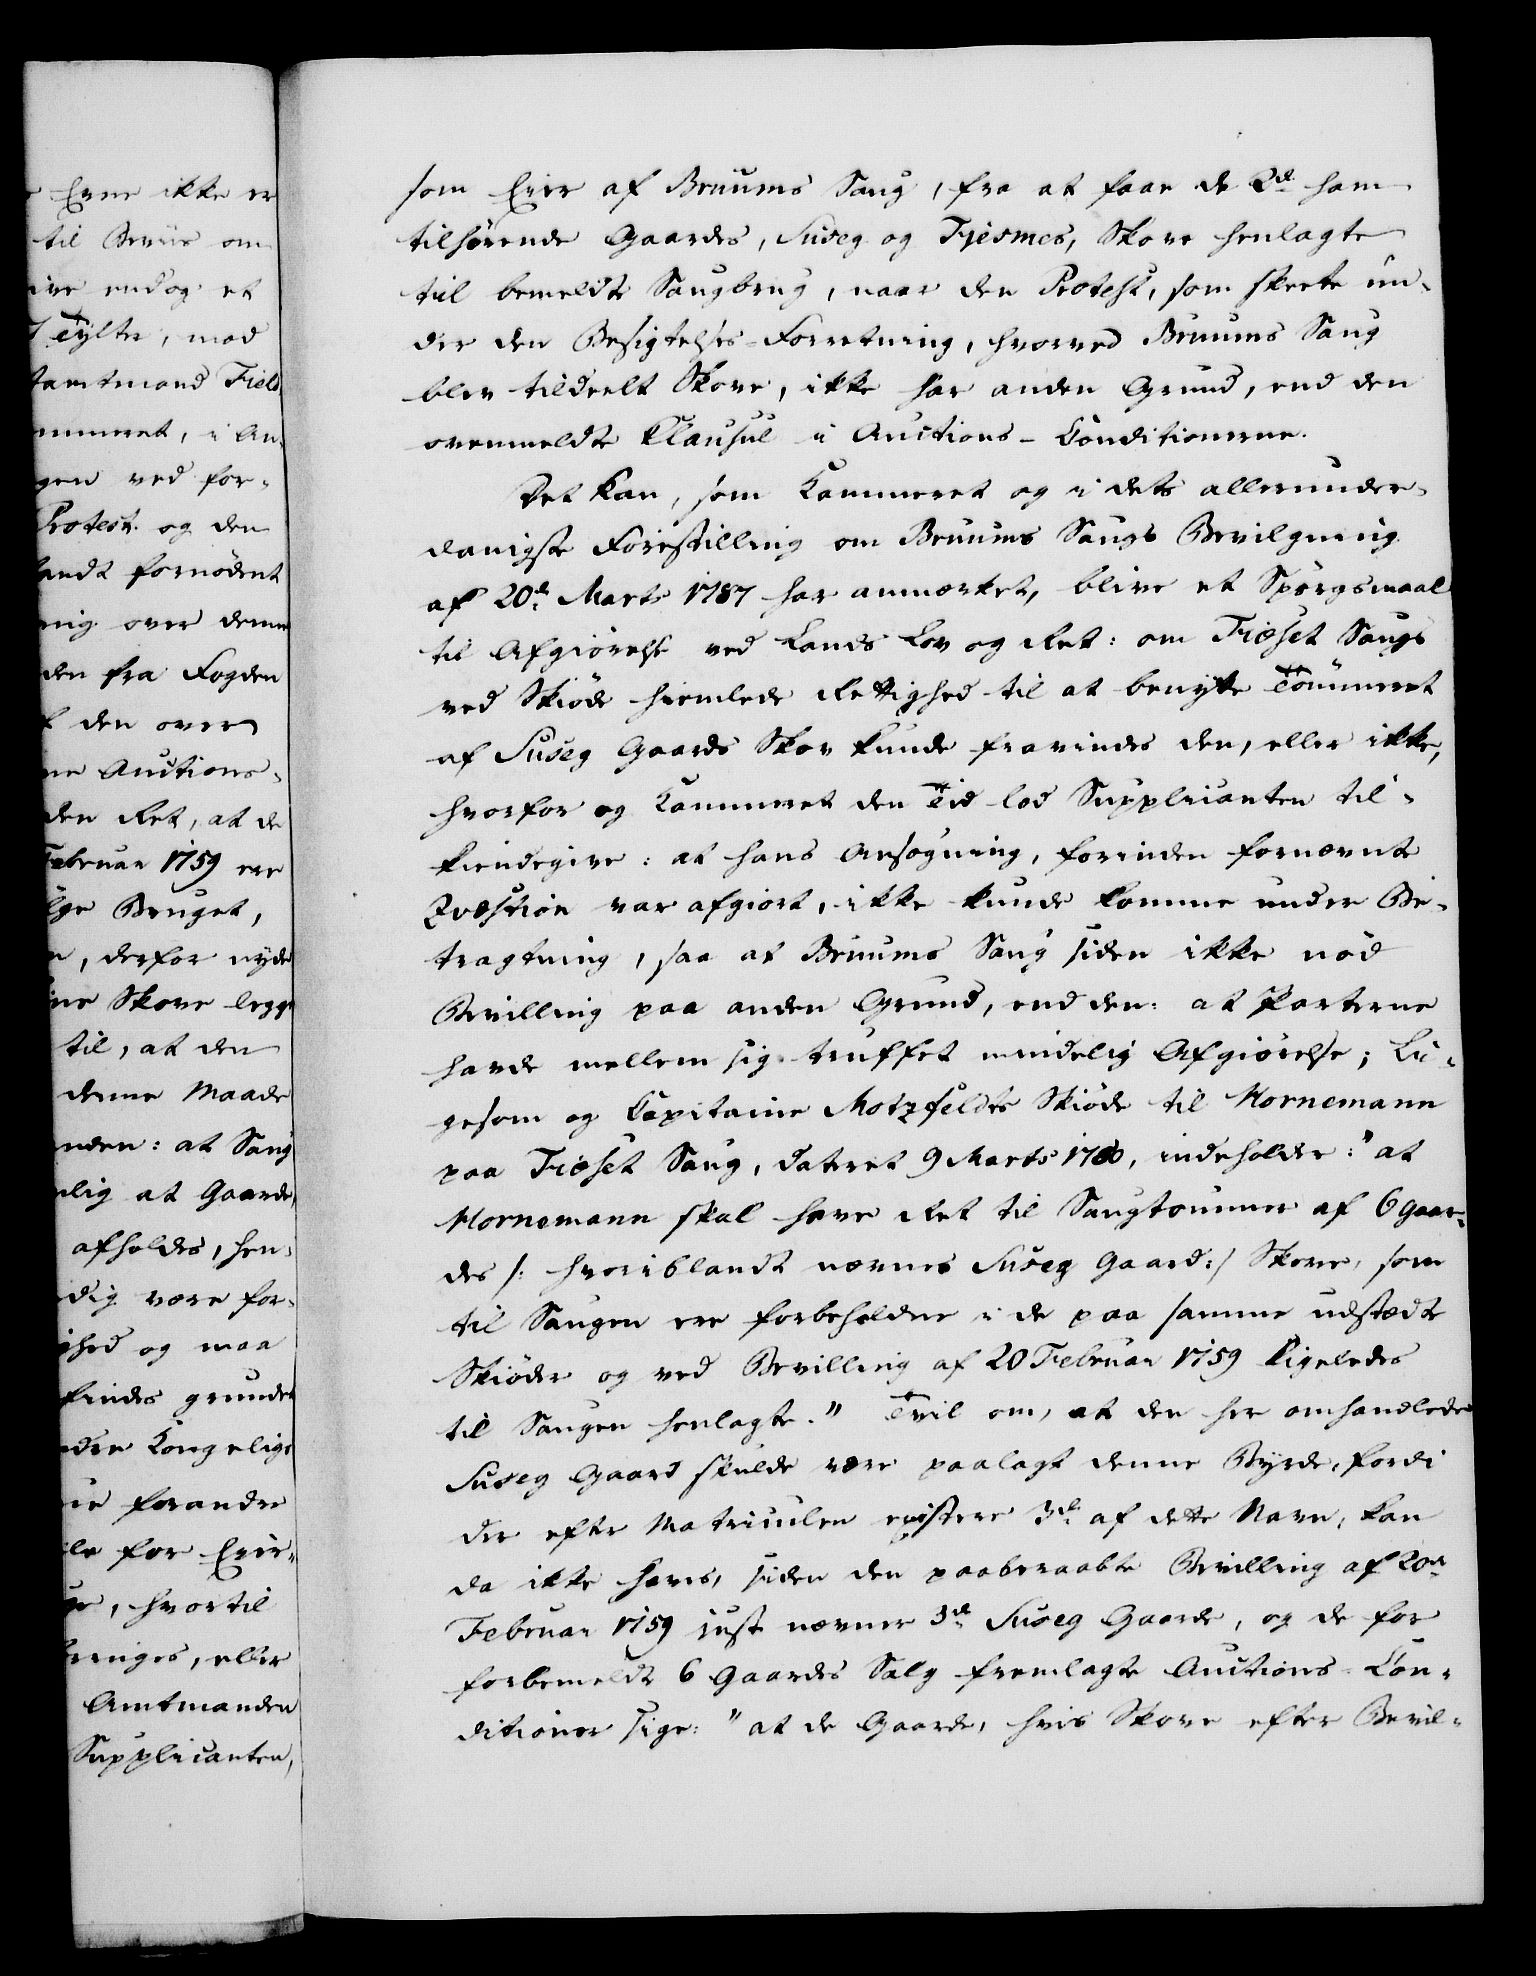 Evne ikke er
til Beviis om
ive endog et
Tylter, mod
tamtmand Field
mmeret, i An-
gen ved for-
Protest og den
andt fornødent
nig over denne
den fra Fogden
den oven
ne Auctions-
den Ret, at de
Februar 1759 ere
lge Bruget,
n, derfor nyde
ine Skove legge
til, at den
denne Maade
nden: at Saug
nlig at Gaarde
afholdes, hen-
dig være for-
ghed og maa
findes grundet
nden Kongelige
ie forandre
ele for Eier-
ge, hvortil
bringes, eller
Amtmanden
Supplicanten,
som Eier af Bruums Saug, fra at faae de 2de ham
tilhørende Gaardes, Suseg og Fjesmes, Skove henlagte
til bemeldte Saugbrug, naar den Protest, som skeete un-
der den Besigtelses-Forretning, hvorved Bruums Saug
blev tildeelt Skove, ikke har anden Grund, end den
ovenmeldte Klausul i Auctions-Conditionerne.
Det kan, som Kammeret og i dets allerunder-
danigste Forestilling om Bruums Saugs Bevilgning
af 20de Marts 1787 har anmærket, blive et Spørgsmaal
til Afgiørelse ved Lands Lov og Ret: om Fiæset Saugs
ved Skiøde hiemlede Rettighed til at benytte Tømmeret
af Suseg Gaards Skov kunde fravindes den, eller ikke,
hvorfor og Kammeret den Tid lod Supplicanten til-
kiendegive: at hans Ansøgning, forinden fornævnte
Qvæstion var afgiort, ikke kunde komme under Be-
tragtning, saa at Bruums Saug siden ikke nød
Bevilling paa anden Grund, end den: at Parterne
havde mellem sig truffet mindelig Afgiørelse; Li-
gesom og Capitaine Motzfeldts Skiøde til Hornemann
paa Fiæset Saug, dateret 9 Marts 1780, indeholder: "at
Hornemann skal have Ret til Saugtømmer af 6 Gaar-
des /: hvoriblandt nævnes Suseg Gaard:/ Skove, som
til Saugen ere forbeholdne i de paa samme udstædte
Skiøder og ved Bevilling af 20 Februar 1759 ligeledes
til Saugen henlagte." Tvil om, at den her omhandlede
Suseg Gaard skulde være paalagt denne Byrde, fordi
der efter Matriculen existere 3de af dette Navn, kan
da ikke haves, siden den paaberaabte Bevilling af 20de
Februar 1759 just nævner 3de Suseg Gaarde, og de for
forbemeldte 6 Gaardes Salg fremlagte Auctions-Con-
ditioner sige: "at de Gaarde, hvis Skove efter Bevil-